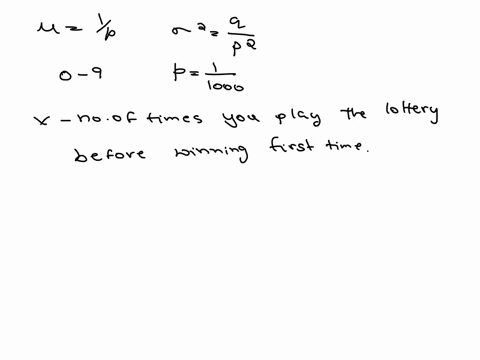 μ = 1/p σ² = q/p²
0-9 p = 1/1000
x - no. of times you play the lottery
before winning first time.